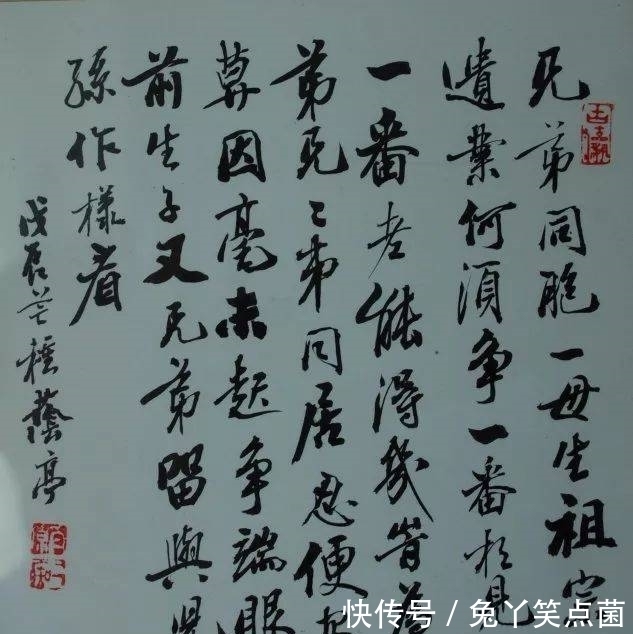 兄弟同胞一母生祖宗
遺業何須争一番相見
一番老能得幾峕為
弟兄〻弟同居忍便安
莫因毫末起争端眼
前生子又兄弟留與児
孫作樣看
戊辰芒種 亭
快传号 / 兔丫笑点菌